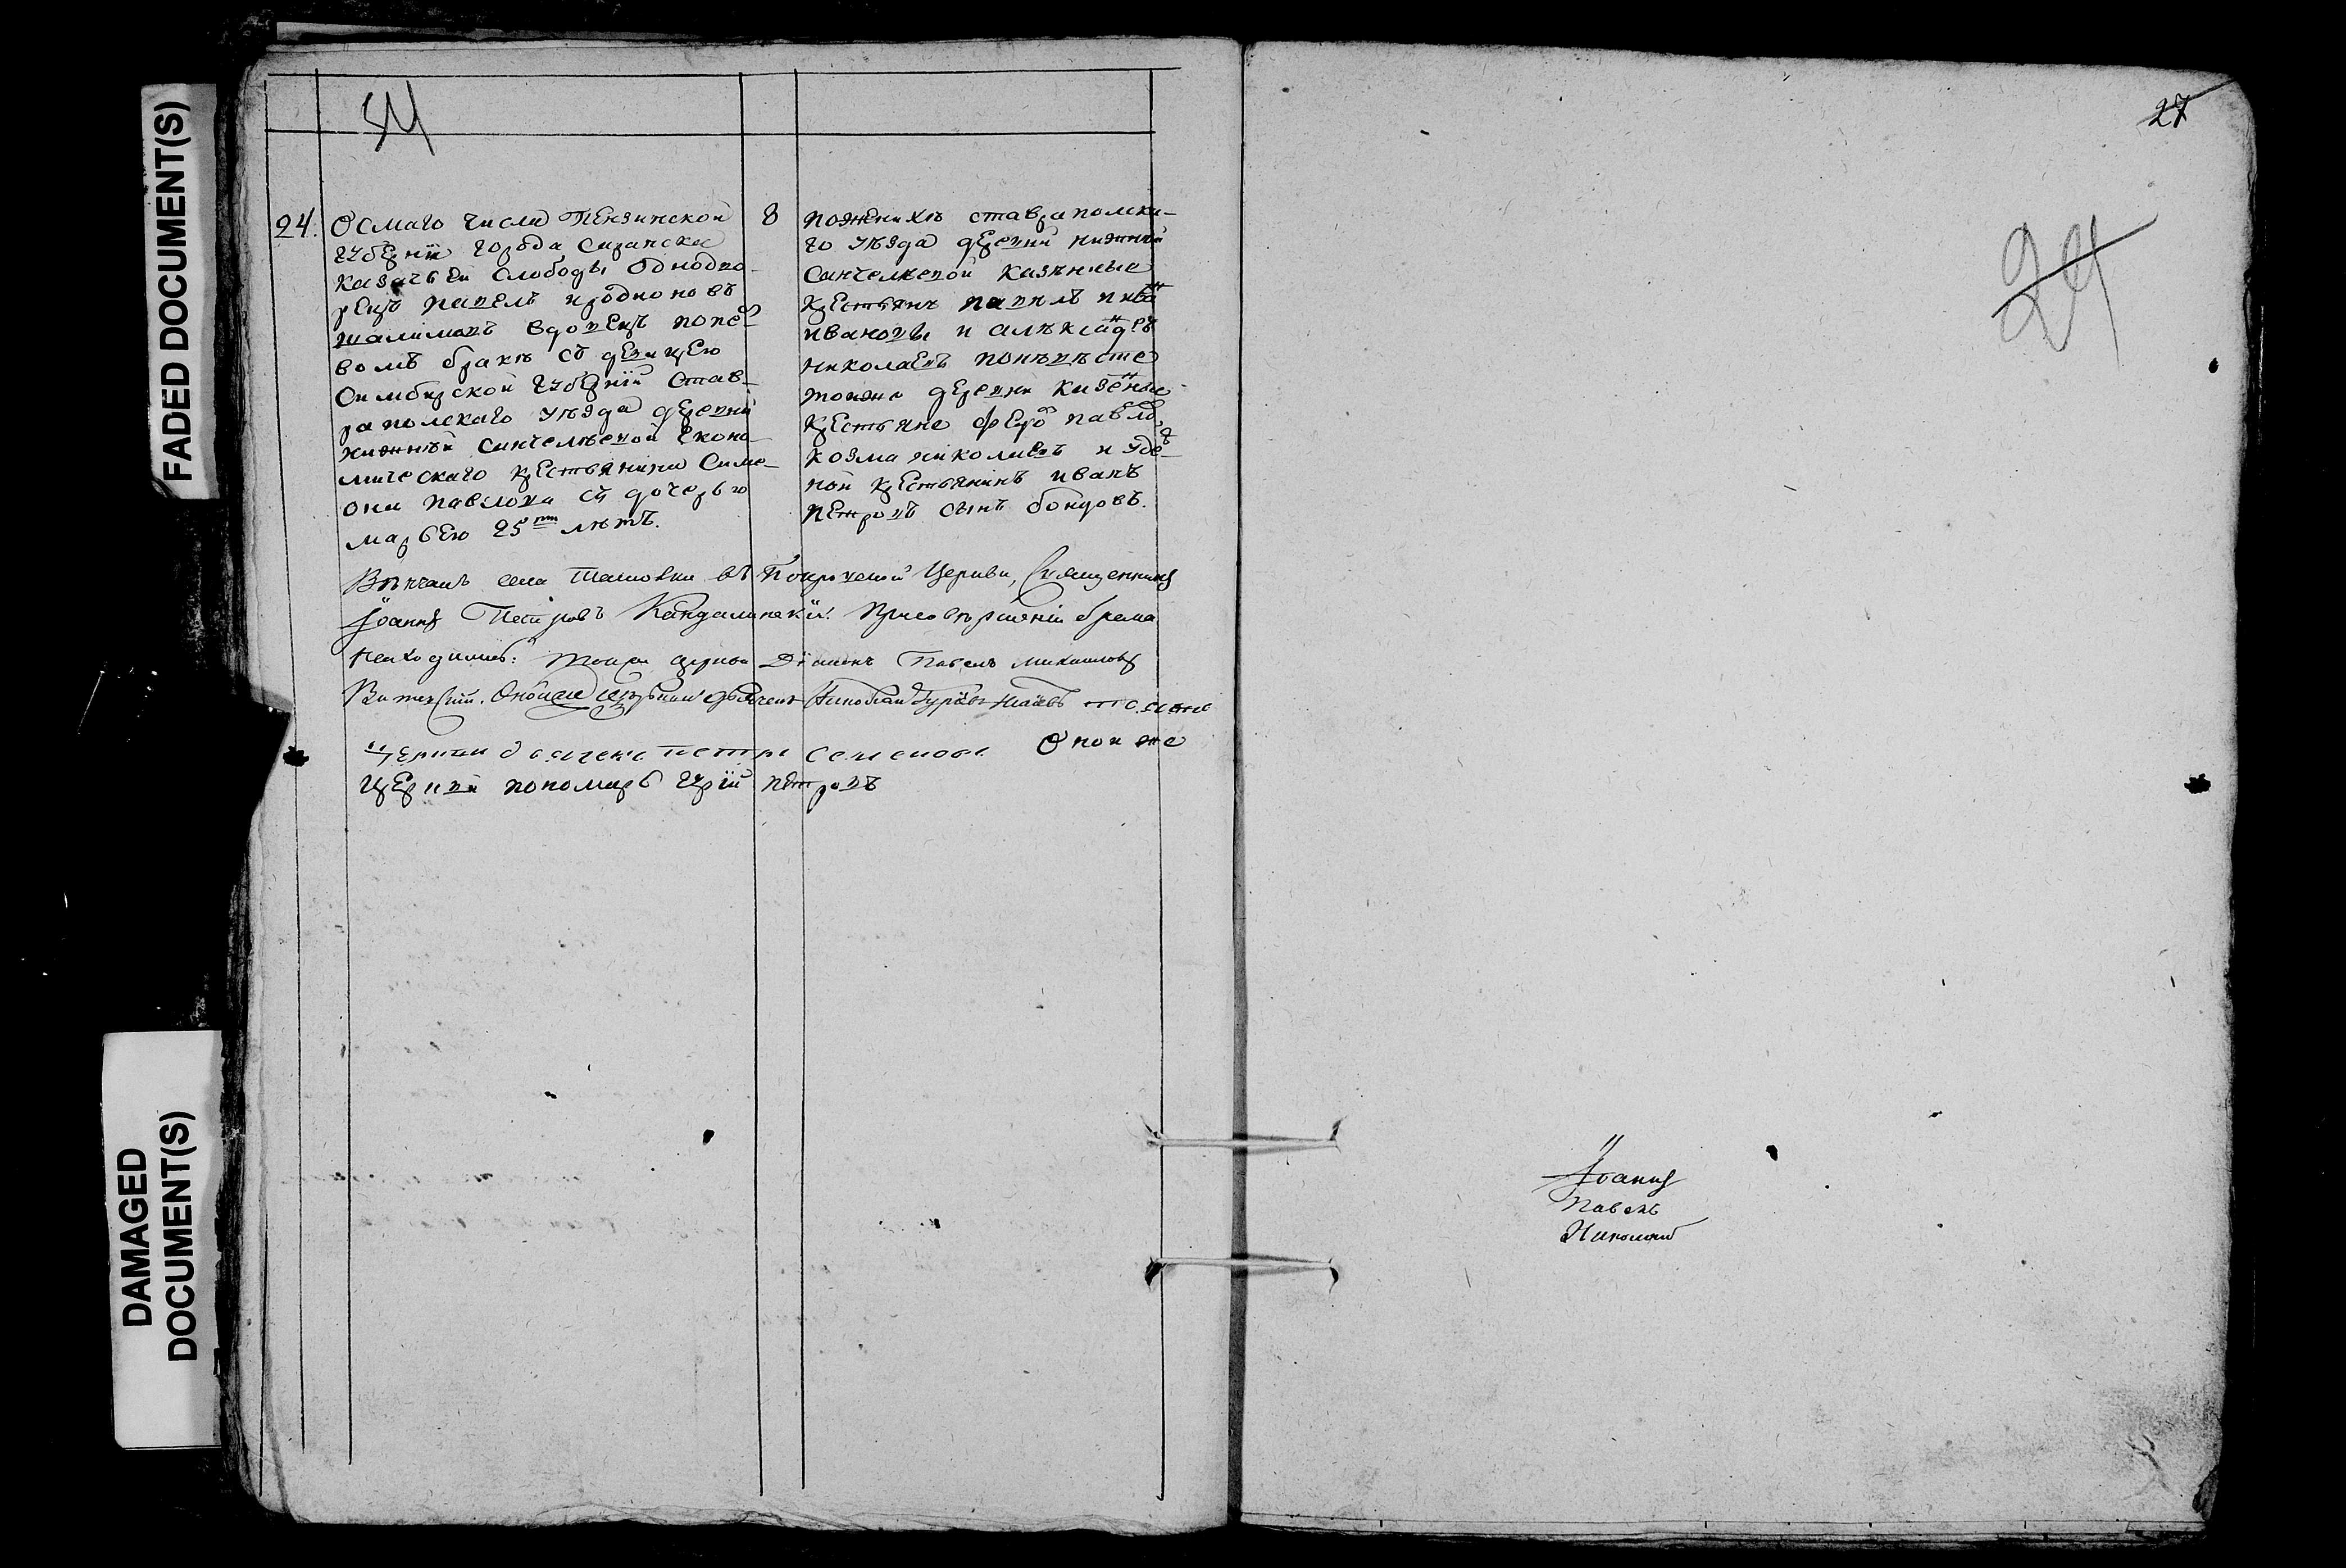 FADED DOCUMENT(S)
DAMAGED DOCUMENT(S)
24.
Осмаго числа Пензинской
губернїи города Сызранска
Казачьей слободы однодво-
рецъ Павелъ
вдовецъ попер-
вомъ бракѣ съ девицею
Симбирской губернїи Став-
рапольскаго уѣзда деревни
нижнѣй Санчелѣевой Еконо-
мическаго крестьянина Симе-
она Павлова съ дочерью
марьею 25ти лѣтъ.
8
поженихѣ ставрапольска-
го уѣзда деревни нижнѣй
Санчелѣевой казенные
крестьяне павилъ иванъ
ивановы и алѣксандеръ
николаевъ поневѣсте
тоеже деревни казенные
крестьяне федоръ павловъ,
козма николаевъ и удѣ-
ной крестьянинъ иванъ
петровъ сынъ бондовъ.
Вѣнчалъ села Ташовки въ Покровской Церкви, Священникъ
Іоаннъ Петровъ Кандалинскїй. Присовершенїи брака
находились: тойже церкви Дїаконъ Павелъ Михайловъ
Оной же церкви дьячекъ Николай Гурїевъ
церкви дьячекъ петръ семеновъ Оной же
церкви пономарь петровъ
27
24
Іоаннъ
Павелъ
Николай